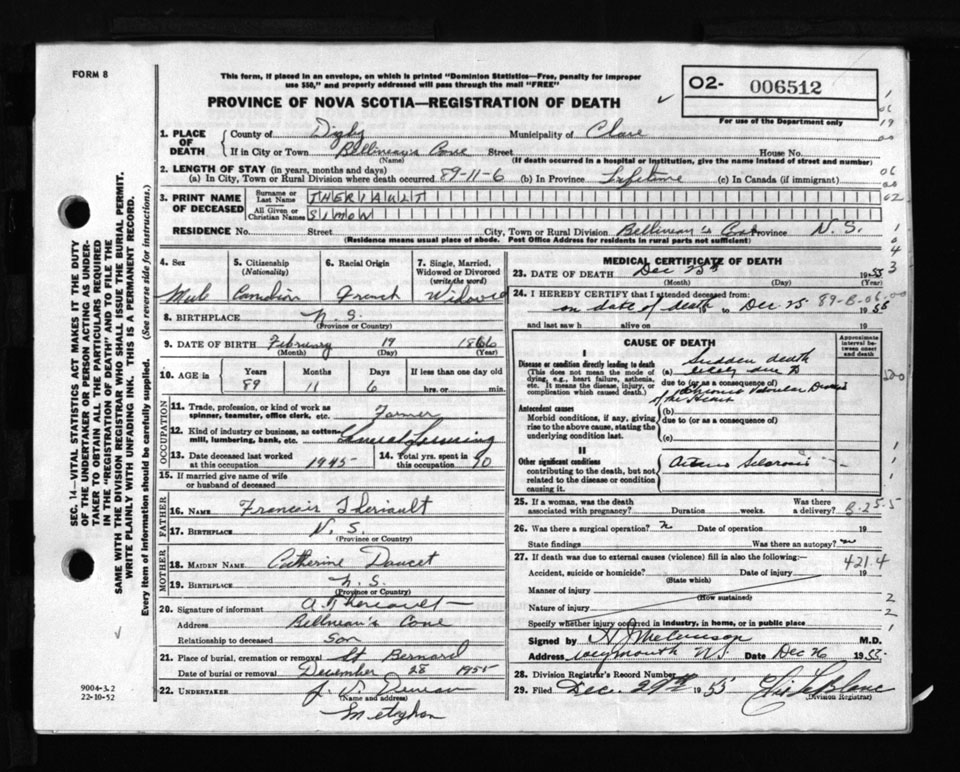 FORM 8
This form, if placed in an envelope, on which is printed "Dominion Statistics—Free, penalty for improper
use $50," and properly addressed will pass through the mail "FREE"
PROVINCE OF NOVA SCOTIA—REGISTRATION OF DEATH
02- 006512
For use of the Department only
1. PLACE OF DEATH County of Digby Municipality of Clare
If in City or Town Bellineau's Cove Street House No.
(Name) (If death occurred in a hospital or institution, give the name instead of street and number)
2. LENGTH OF STAY (in years, months and days)
(a) In City, Town or Rural Division where death occurred 89-11-6 (b) In Province Lifetime (c) In Canada (if immigrant)
3. PRINT NAME OF DECEASED Surname or Last Name THERIAULT
All Given or Christian Names SIMON
RESIDENCE No. Street City, Town or Rural Division Bellineau's Cove Province N.S.
(Residence means usual place of abode. Post Office Address for residents in rural parts not sufficient)
4. Sex 5. Citizenship (Nationality) 6. Racial Origin 7. Single, Married, Widowed or Divorced (write the word)
Male Canadian French
8. BIRTHPLACE N.S.
(Province or Country)
9. DATE OF BIRTH February 19 1866
(Month) (Day) (Year)
10. AGE in Years Months Days If less than one day old
89 11 6 hrs. or min.
OCCUPATION
11. Trade, profession, or kind of work as spinner, teamster, office clerk, etc. Farmer
12. Kind of industry or business, as cotton-mill, lumbering, bank, etc. General Farming
13. Date deceased last worked at this occupation 1945 14. Total yrs. spent in this occupation
15. If married give name of wife or husband of deceased
FATHER
16. NAME Francois Theriault
17. BIRTHPLACE N.S.
(Province or Country)
MOTHER
18. MAIDEN NAME Catherine Doucet
19. BIRTHPLACE N.S.
(Province or Country)
20. Signature of informant A. Theriault
Address Bellneau's Cove
Relationship to deceased Son
21. Place of burial, cremation or removal St Bernard
Date of burial or removal December 28 1955
22. UNDERTAKER
(Name and address)
Meteghan
MEDICAL CERTIFICATE OF DEATH
23. DATE OF DEATH Dec 25th 1955
(Month) (Day) (Year)
24. I HEREBY CERTIFY that I attended deceased from:
on date of death to Dec 25 1955
and last saw h alive on 19
CAUSE OF DEATH
Approximate interval between onset and death
I
Disease or condition directly leading to death
(This does not mean the mode of dying, e.g., heart failure, asthenia, etc. It means the disease, injury, or complication which caused death.)
(a) Sudden death likely due to
due to (or as a consequence of)
Chronic Valvular Disease of the Heart
Antecedent causes
Morbid conditions, if any, giving rise to the above cause, stating the underlying condition last.
(b)
due to (or as a consequence of)
(c)
II
Other significant conditions
contributing to the death, but not related to the disease or condition causing it.
25. If a woman, was the death associated with pregnancy? Duration weeks. Was there a delivery?
26. Was there a surgical operation? Date of operation 19
State findings Was there an autopsy?
27. If death was due to external causes (violence) fill in also the following:—
421.4
Accident, suicide or homicide? Date of injury 19
(State which)
Manner of injury
(How sustained)
Nature of injury
Specify whether injury occurred in industry, in home, or in public place
Signed by M.D.
Address Weymouth N.S. Date Dec 26 1955
28. Division Registrar's Record Number
29. Filed Dec. 29th 1955
(Division Registrar)
SEC. 14—VITAL STATISTICS ACT MAKES IT THE DUTY
OF THE UNDERTAKER OR PERSON ACTING AS UNDERTAKER TO OBTAIN ALL THE PARTICULARS REQUIRED
IN THE "REGISTRATION OF DEATH" AND TO FILE THE
SAME WITH THE DIVISION REGISTRAR WHO SHALL ISSUE THE BURIAL PERMIT.
WRITE PLAINLY WITH UNFADING INK. THIS IS A PERMANENT RECORD.
Every item of information should be carefully supplied. (See reverse side for instructions.)
9004-3.2
22-10-52